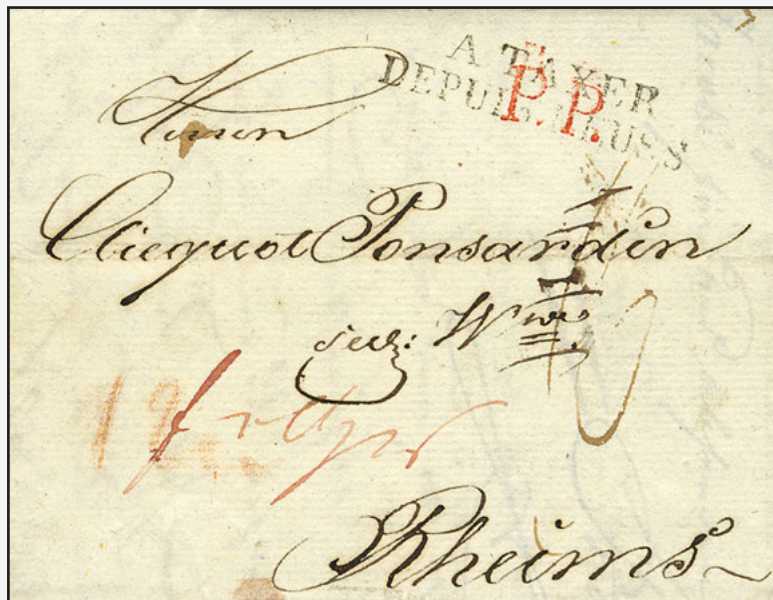 A TAXER
DEPUIS REUSS
P.P.
Herren
Clicquot Ponsardin
seel: Wwe.
Rheims